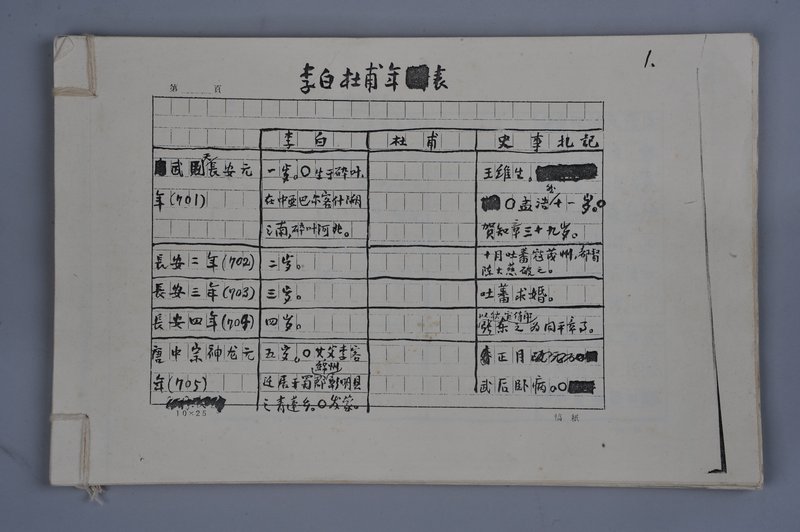 1.
李白杜甫年表
第 頁
李白 杜甫 史事札記
武則天長安元年(701)
一岁。○生于碎叶,
在中亚巴尔客什湖
之南,碎叶河北。
王维生。
○孟浩然十一岁。○
贺知章三十九岁。
長安二年(702)
二岁。
十月吐蕃寇茂州,都督
陈大慈破之。
長安三年(703)
三岁。
吐蕃求婚。
長安四年(704)
四岁。
张柬之为同平章事。
唐中宗神龙元年(705)
五岁。○其父李客
迁居于蜀郡绵州彰明县
之青莲乡。○发蒙。
正月
武后卧病。○
10×25
稿紙